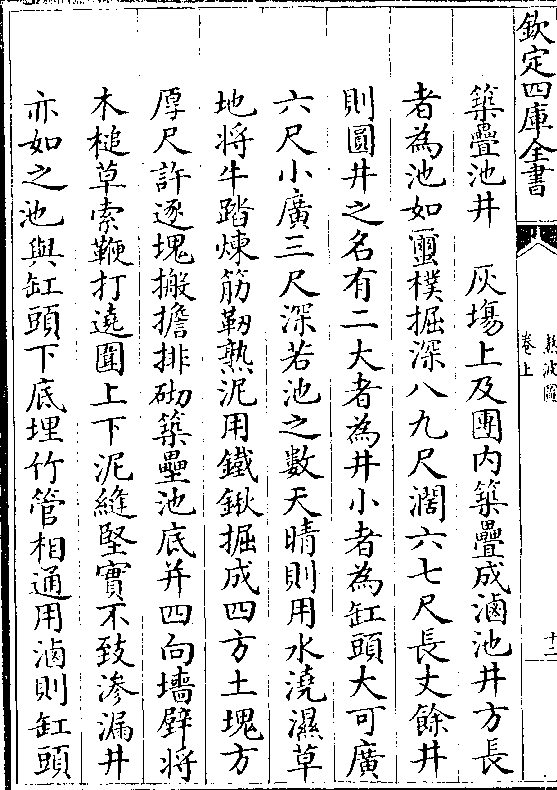 欽定四庫全書
熬波圖
卷上
十二
築疊池井　灰場上及團内築疊成滷池井方長
者為池如璽樸掘深八九尺濶六七尺長丈餘井
則圓井之名有二大者為井小者為缸頭大可廣
六尺小廣三尺深若池之數天晴則用水澆濕草
地将牛踏煉筋靭熟泥用鐵鍬掘成四方土塊方
厚尺許逐塊搬擔排砌築壘池底并四向墻壁将
木槌草索鞭打遶圍上下泥縫堅實不致滲漏井
亦如之池與缸頭下底埋竹管相通用滷則缸頭